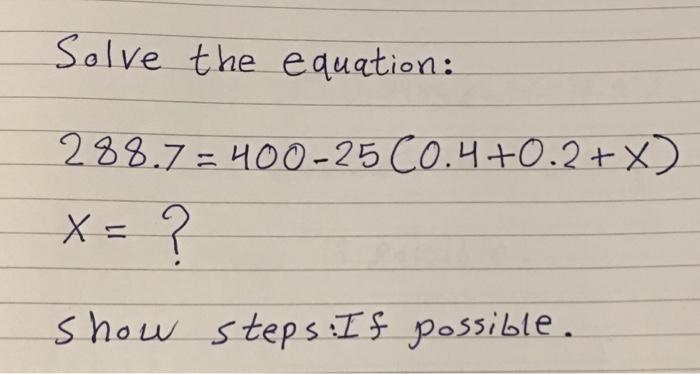 Solve the equation:
288.7 = 400-25 (0.4+0.2+x)
x = ?
show steps:If possible.